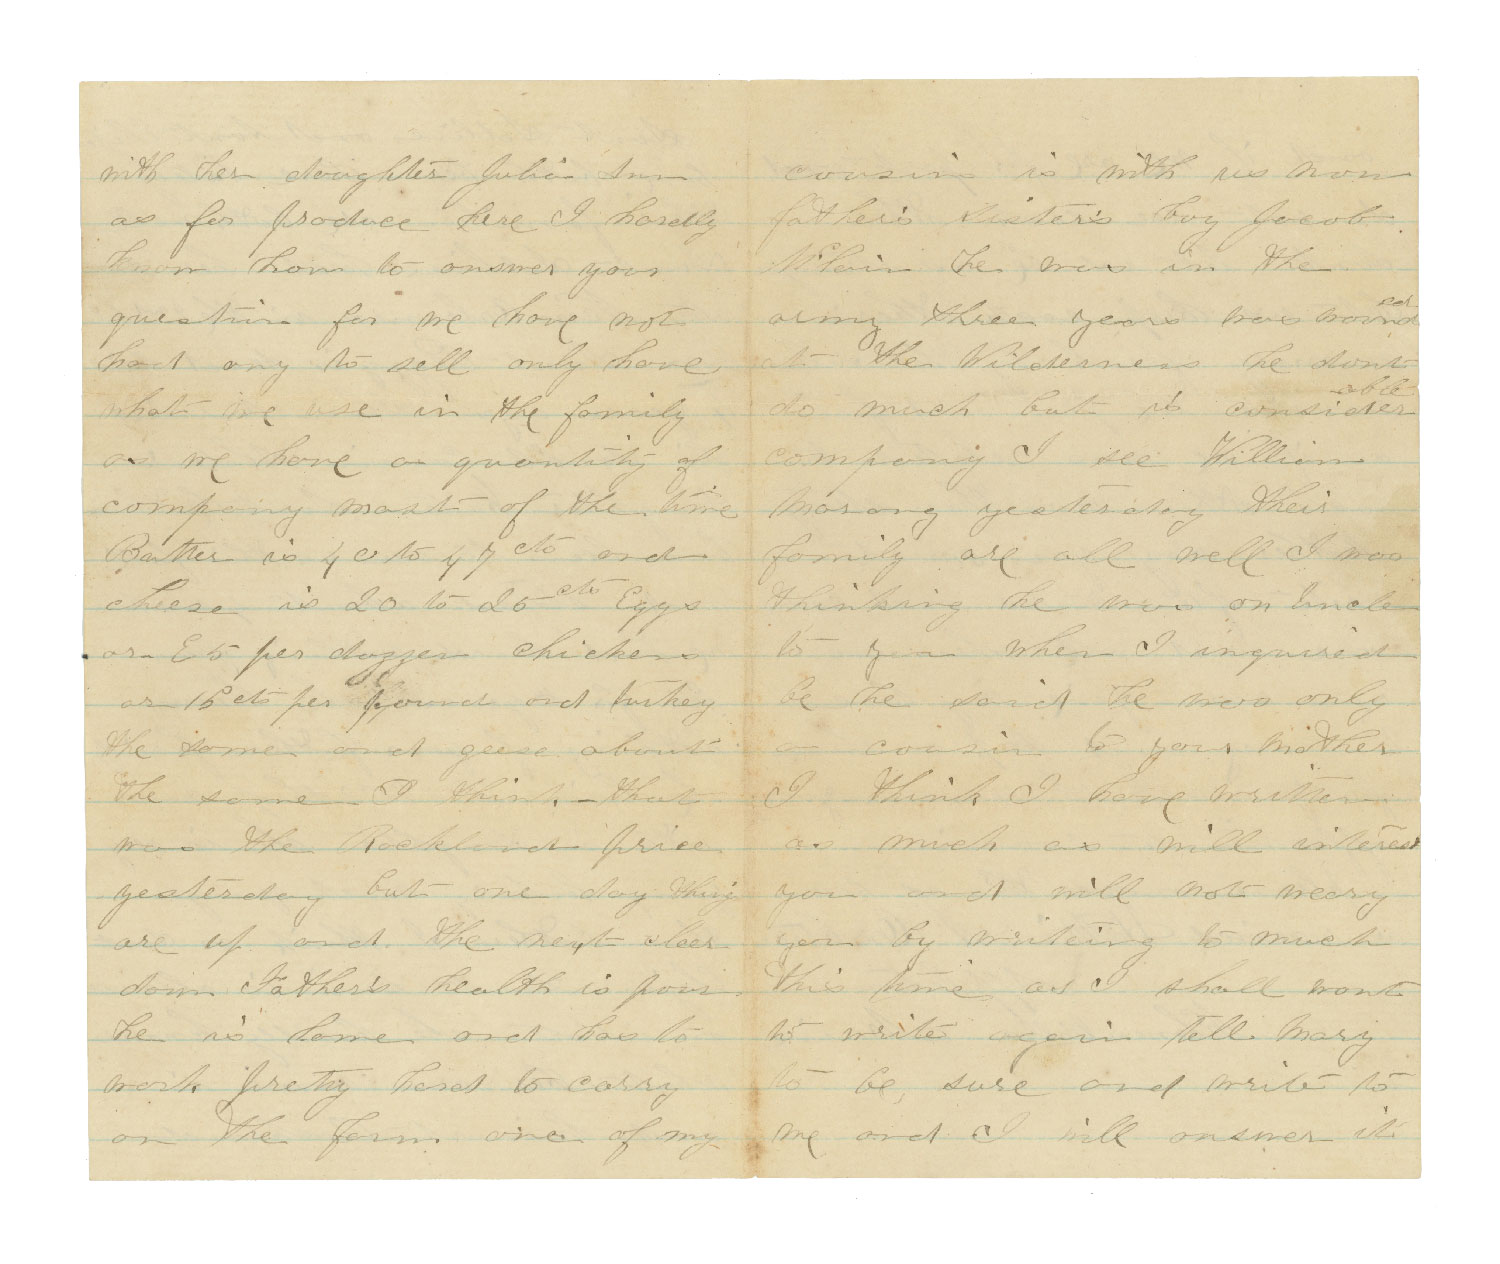 with her daughter Julia Ann
as for produce here I hardly
know how to answer your
question for we have not
had any to sell only have
what we use in the family
as we have a quantity of
company most of the time
Butter is 40 to 47 cts and
cheese is 20 to 25 cts Eggs
ar 25 per dozzen chickens
ar 15 cts per pound and turkey
the same and geese about
the same I think - that
was the Rockland price
yesterday but one day thing
are up and the next cleer
down Father's health is poor
he is lame and has to
work pretty hard to carry
on the farm one of my
cousin is with us now
father's sister's boy Jacob
McLain he was in the
army three years was wounded
at the Wilderness he dont
do much but is considerable
company I see William
Marang yesterday their
family are all well I was
thinking he was an Uncle
to you when I inquired
be he said he was only
a cousin to your mother
I think I have written
as much as will interest
you and will not weary
you by writeing to much
this time as I shall want
to write again tell Mary
to be sure and write to
me and I will answer it